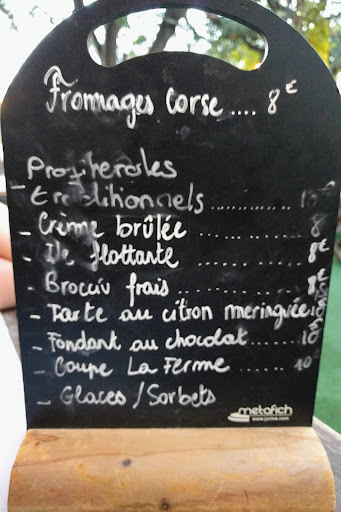 Fromages Corse .... 8€
Profiteroles
- traditionnels ..............
- Crème brûlée .......... 8
- Ile flottante .......... 8€
- Brocciu frais ........... 8€
- Tarte au citron meringuée
- Fondant au chocolat ...... 10
- Coupe La Ferme ...... 10€
- Glaces / Sorbets
metafich